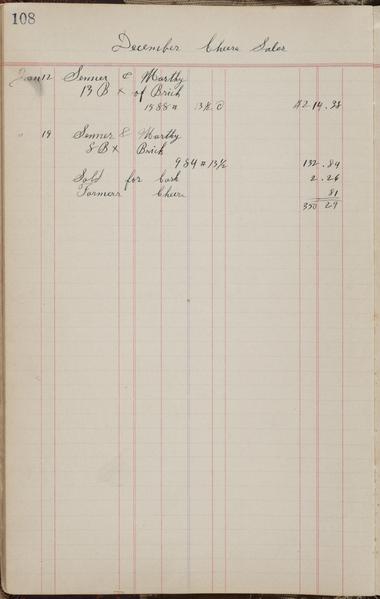 108
December Cheese Sales
Jan 12 Senner & Marthy
13 Bx of Brick
1588 # 13½ ¢ $214.38
" 19 Senner & Marthy
8 Bx Brick
984 # 13½ 132.84
Sold for Cash 2.26
Farmers Cheese 81
350 29